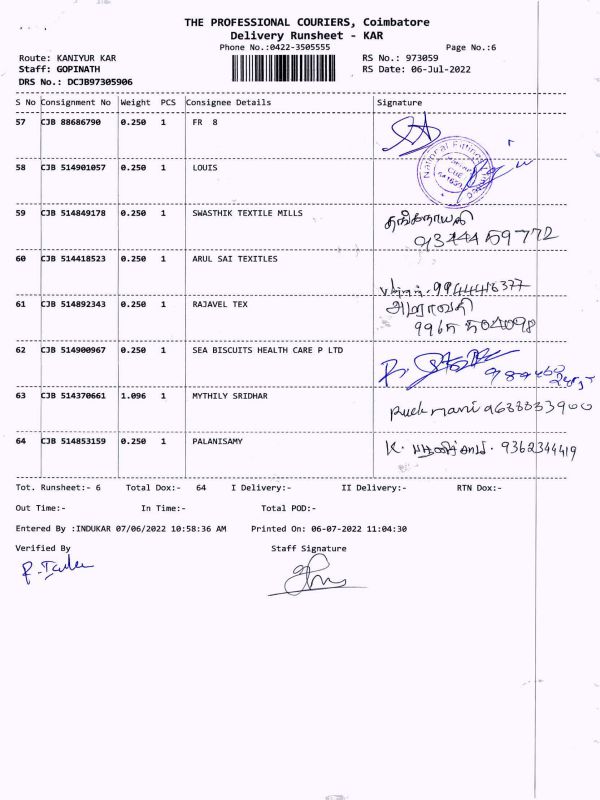 THE PROFESSIONAL COURIERS, Coimbatore
Delivery Runsheet - KAR
Phone No.:0422-3505555
Page No.:6
Route: KANIYUR KAR
RS No.: 973059
Staff: GOPINATH
RS Date: 06-Jul-2022
DRS No.: DCJB97305906
S No Consignment No Weight PCS Consignee Details Signature
57 CJB 88686790 0.250 1 FR 8
58 CJB 514901057 0.250 1 LOUIS
National Fitting
59 CJB 514849178 0.250 1 SWASTHIK TEXTILE MILLS
9344459772
60 CJB 514418523 0.250 1 ARUL SAI TEXITLES
61 CJB 514892343 0.250 1 RAJAVEL TEX
62 CJB 514900967 0.250 1 SEA BISCUITS HEALTH CARE P LTD
63 CJB 514370661 1.096 1 MYTHILY SRIDHAR
64 CJB 514853159 0.250 1 PALANISAMY K. 9362344419
Tot. Runsheet:- 6 Total Dox:- 64 I Delivery:- II Delivery:- RTN Dox:-
Out Time:- In Time:- Total POD:-
Entered By :INDUKAR 07/06/2022 10:58:36 AM Printed On: 06-07-2022 11:04:30
Verified By Staff Signature